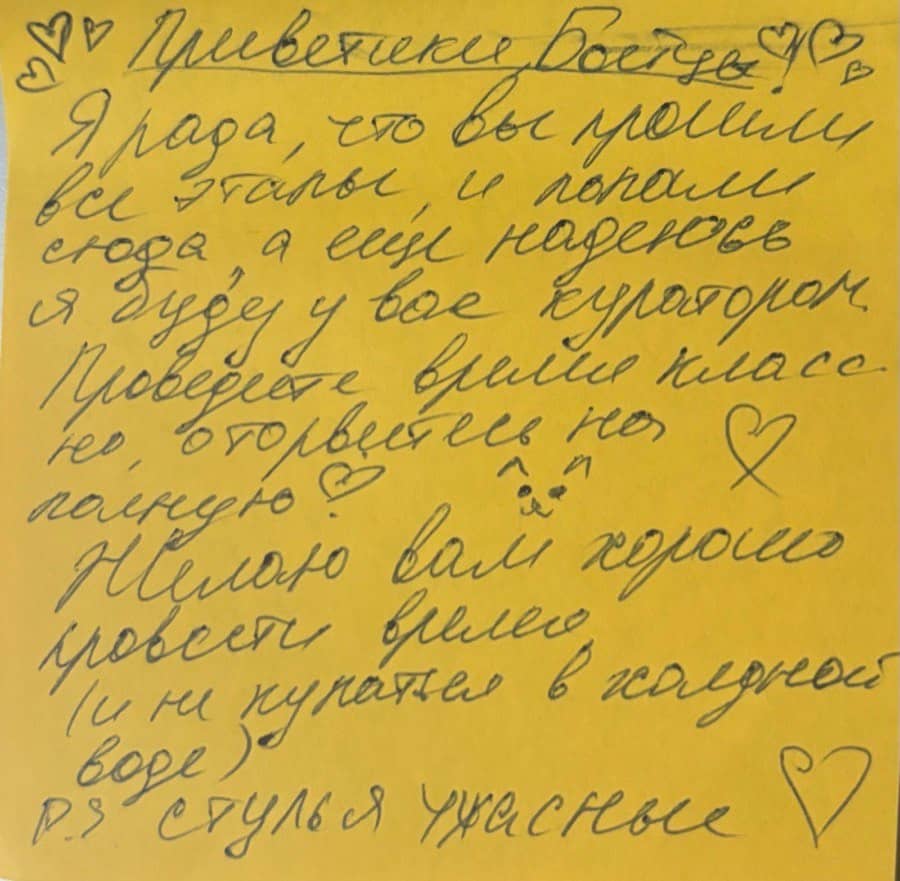 Приветики Бойцы!
Я рада, что вы прошли
все этапы, и попали
сюда, а ещё надеюсь
я буду у вас куратором.
Проведите время класс-
но, оторвитесь на
полную
Желаю вам хорошо
провести время,
(и не купатся в холдной
воде)
P.S стулья ужасные